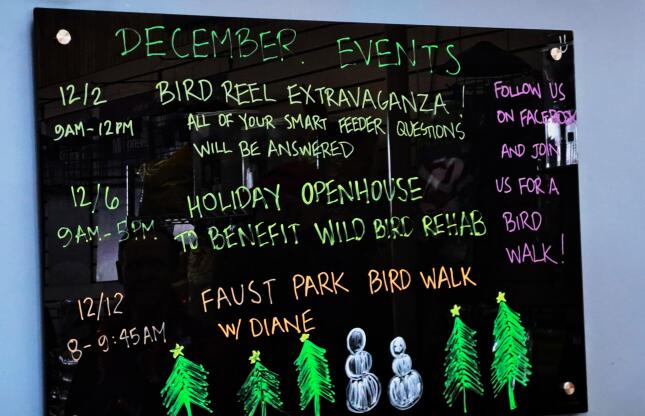 DECEMBER. EVENTS
12/2 BIRD REEL EXTRAVAGANZA!
9AM-12PM ALL OF YOUR SMART FEEDER QUESTIONS
WILL BE ANSWERED
12/6 HOLIDAY OPENHOUSE
9AM-5PM TO BENEFIT WILD BIRD REHAB
12/12 FAUST PARK BIRD WALK
8-9:45AM W/ DIANE
FOLLOW US
ON FACEBOOK
AND JOIN
US FOR A
BIRD
WALK!